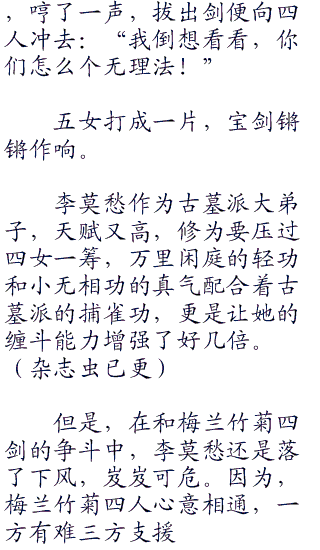 ，哼了一声，拔出剑便向四
人冲去：“我倒想看看，你
们怎么个无理法！”
五女打成一片，宝剑锵
锵作响。
李莫愁作为古墓派大弟
子，天赋又高，修为要压过
四女一筹，万里闲庭的轻功
和小无相功的真气配合着古
墓派的捕雀功，更是让她的
缠斗能力增强了好几倍。
（杂志虫已更）
但是，在和梅兰竹菊四
剑的争斗中，李莫愁还是落
了下风，岌岌可危。因为，
梅兰竹菊四人心意相通，一
方有难三方支援